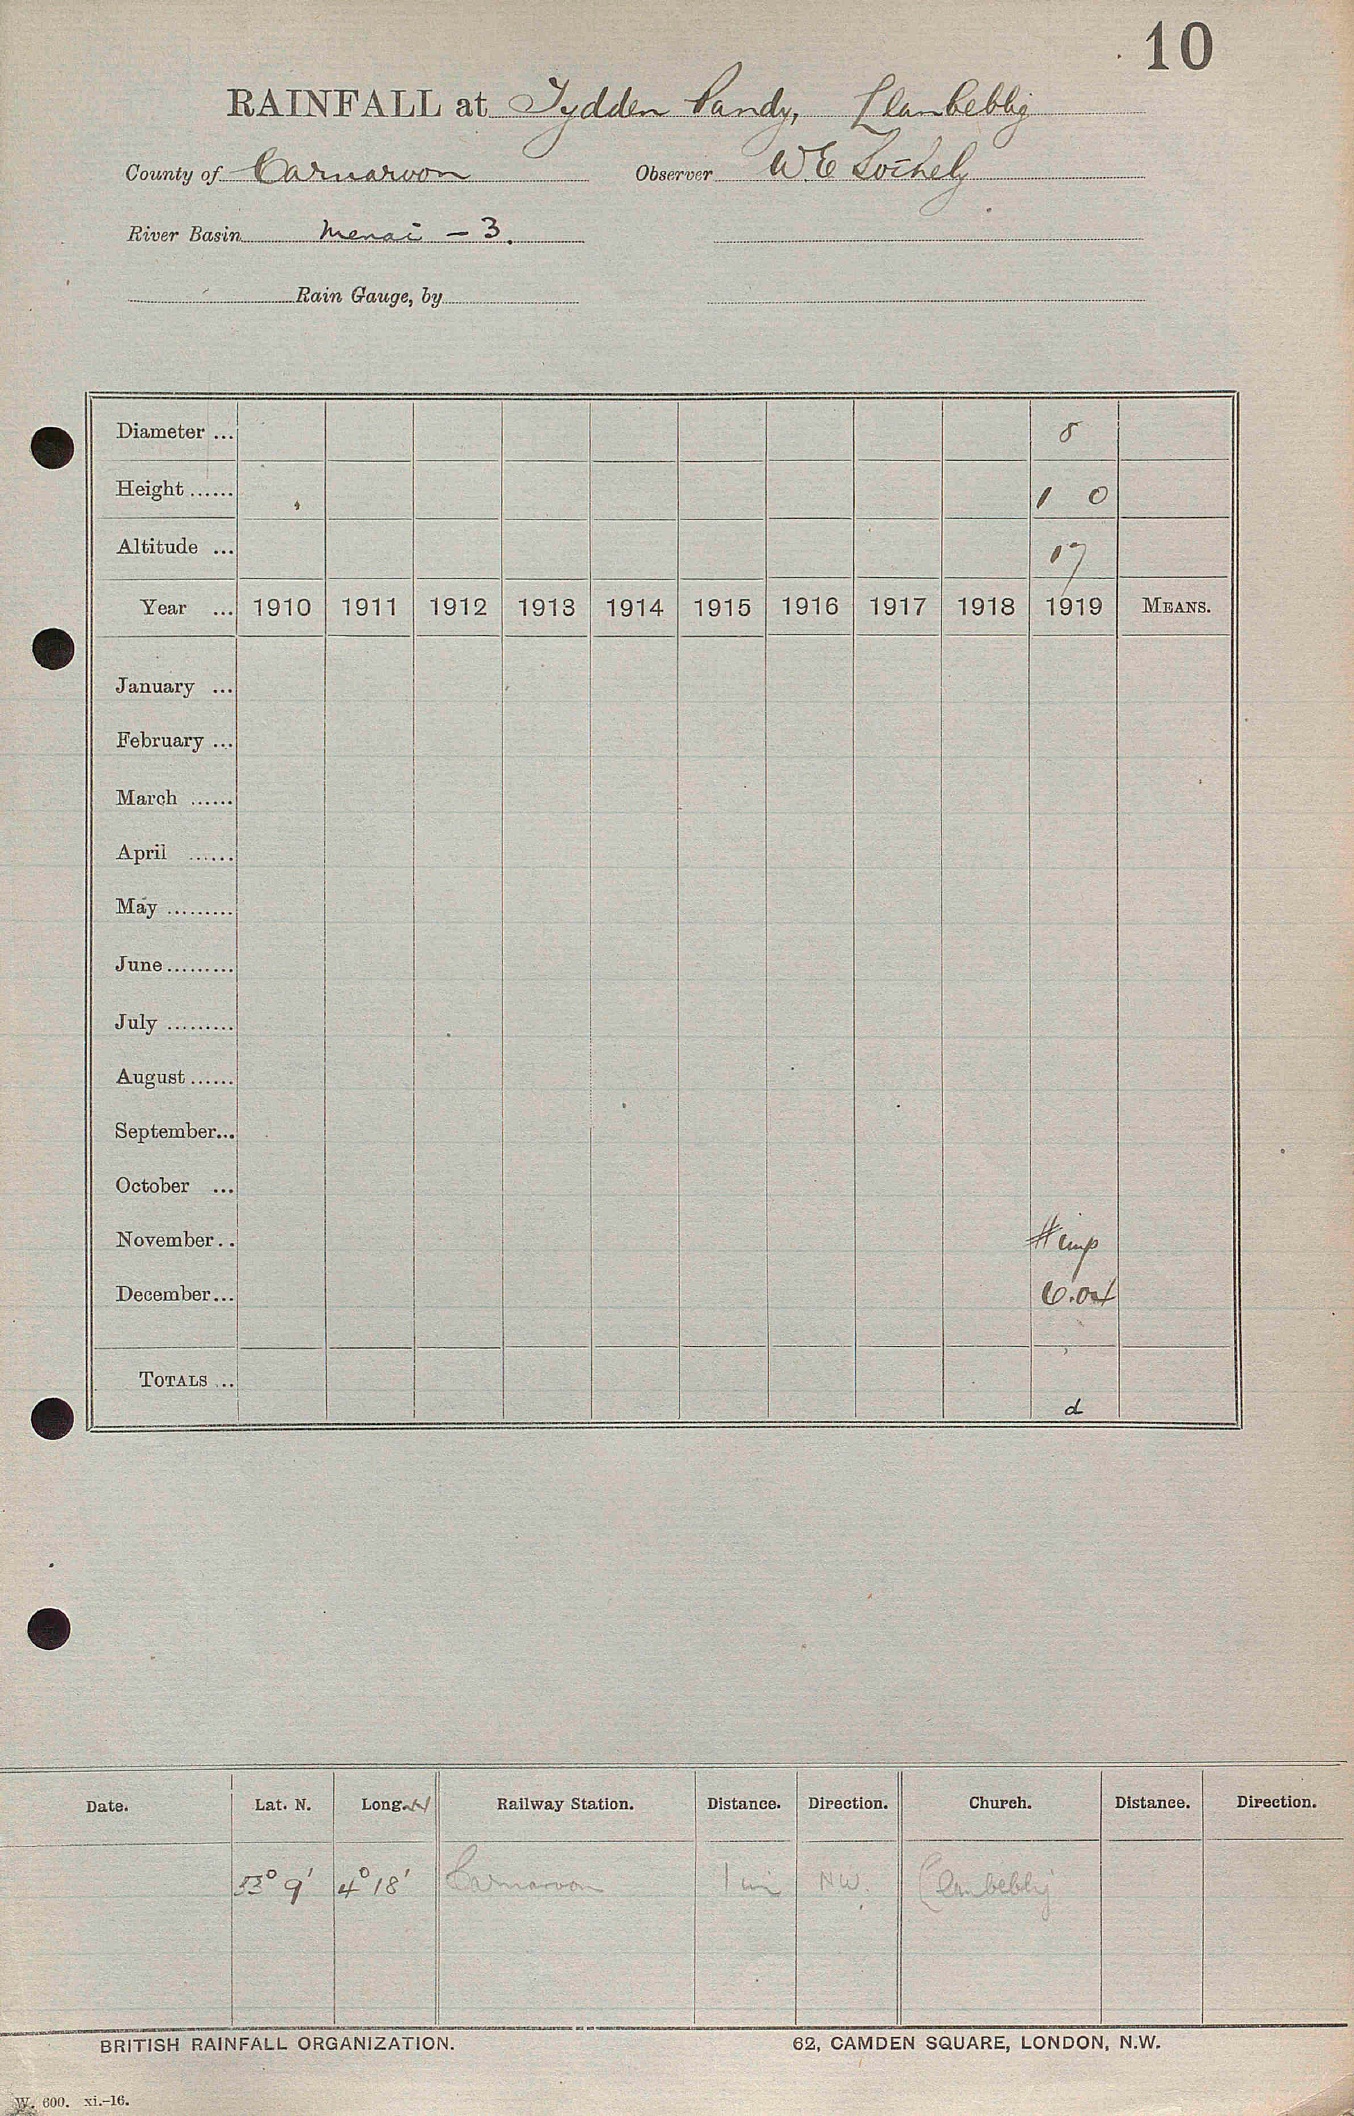 10
RAINFALL at Tydden Pandy, Llanbeblig
County of Carnarvon Observer W E
River Basin Menai - 3.
Rain Gauge, by
Diameter ... 8
Height ...... 1 0
Altitude ... 17
Year ... 1910 1911 1912 1913 1914 1915 1916 1917 1918 1919 MEANS.
January ...
February ...
March ......
April ......
May .........
June.........
July .........
August......
September...
October ...
November.. # imp
December... 6.
TOTALS ...
d
Date. Lat. N. Long. W Railway Station. Distance. Direction. Church. Distance. Direction.
53° 9' 4° 18' Carnarvon 1 mi NW. Llanbeblig
BRITISH RAINFALL ORGANIZATION. 62, CAMDEN SQUARE, LONDON, N.W.
W. 600. xi.-16.